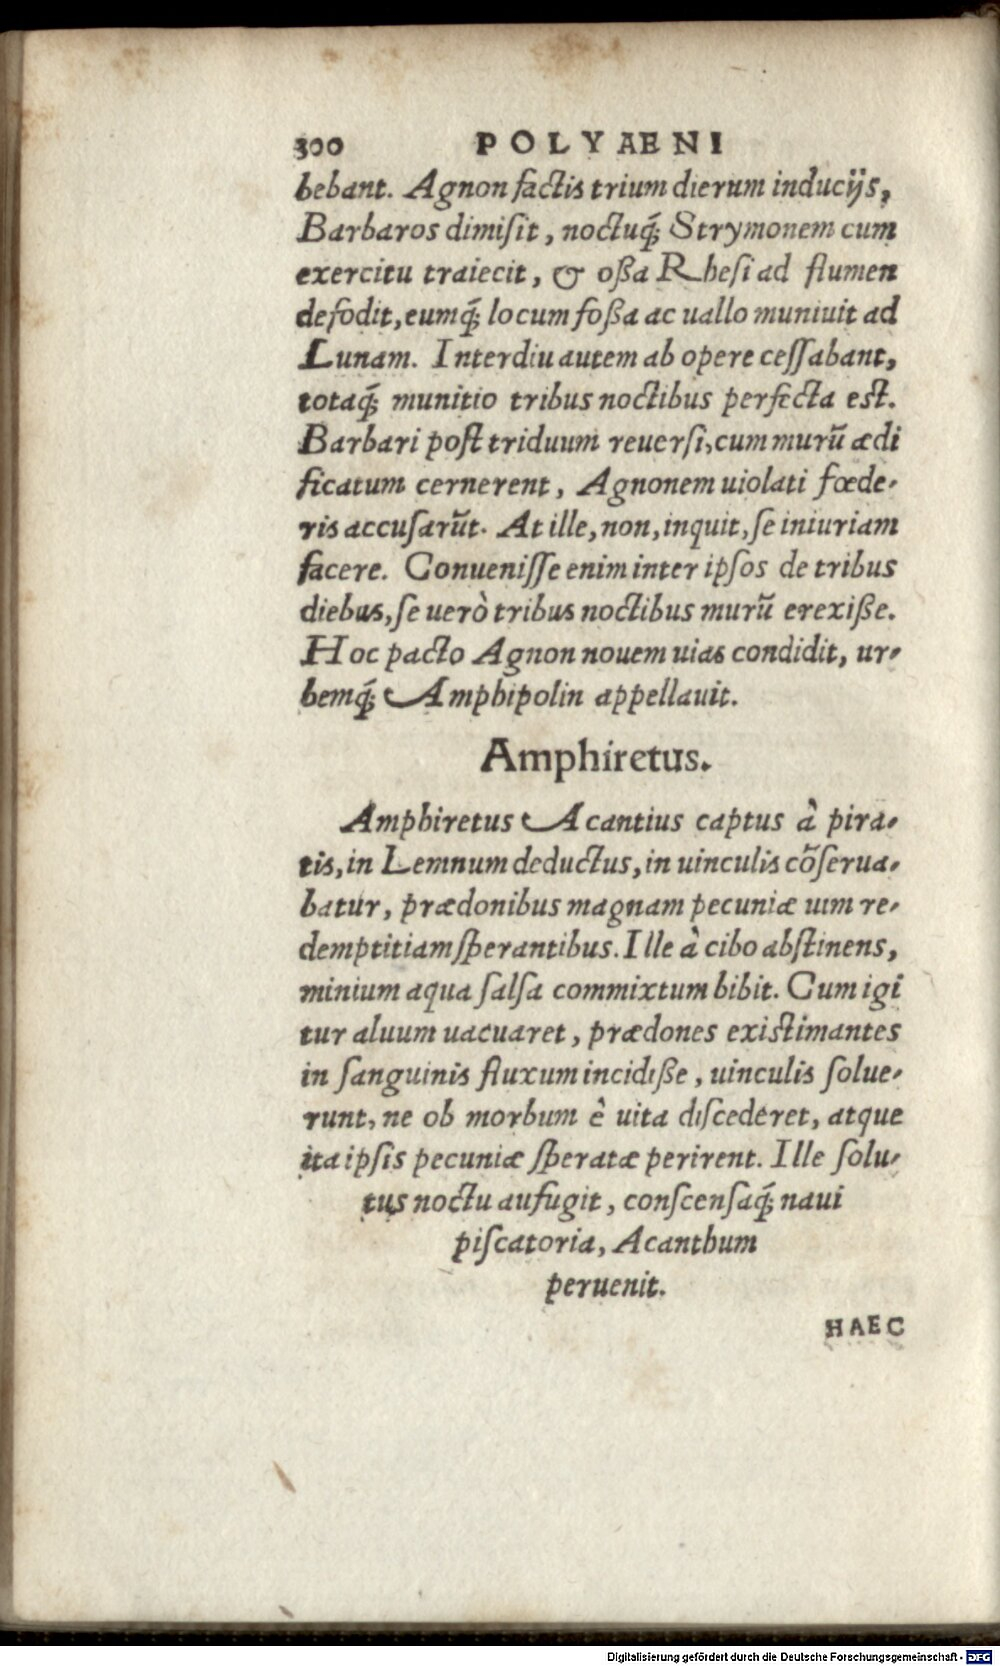 300 POLYAENI
bebant. Agnon factis trium dierum inducijs,
Barbaros dimiſit, noctuq́; Strymonem cum
exercitu traiecit, & oßa Rheſi ad flumen
defodit, eumq́; locum foßa ac uallo muniuit ad
Lunam. Interdiu autem ab opere ceſſabant,
totaq́; munitio tribus noctibus perfecta est.
Barbari post triduum reuerſi, cum murū ædi
ficatum cernerent, Agnonem uiolati fœde-
ris accuſarūt. At ille, non, inquit, ſe iniuriam
facere. Conueniſſe enim inter ipſos de tribus
diebus, ſe uerò tribus noctibus murū erexiße.
Hoc pacto Agnon nouem uias condidit, ur-
bemq́; Amphipolin appellauit.
Amphiretus.
Amphiretus Acantius captus à pira-
tis, in Lemnum deductus, in uinculis cōſerua-
batur, prædonibus magnam pecuniæ uim re-
demptitiam ſperantibus. Ille à cibo abſtinens,
minium aqua ſalſa commixtum bibit. Cum igi
tur aluum uacuaret, prædones existimantes
in ſanguinis fluxum incidiße, uinculis ſolue-
runt, ne ob morbum è uita diſcederet, atque
ita ipſis pecuniæ ſperatæ perirent. Ille ſolu-
tus noctu aufugit, conſcenſaq́; naui
piſcatoria, Acanthum
peruenit.
HAEC
Digitalisierung gefördert durch die Deutsche Forschungsgemeinschaft - DFG